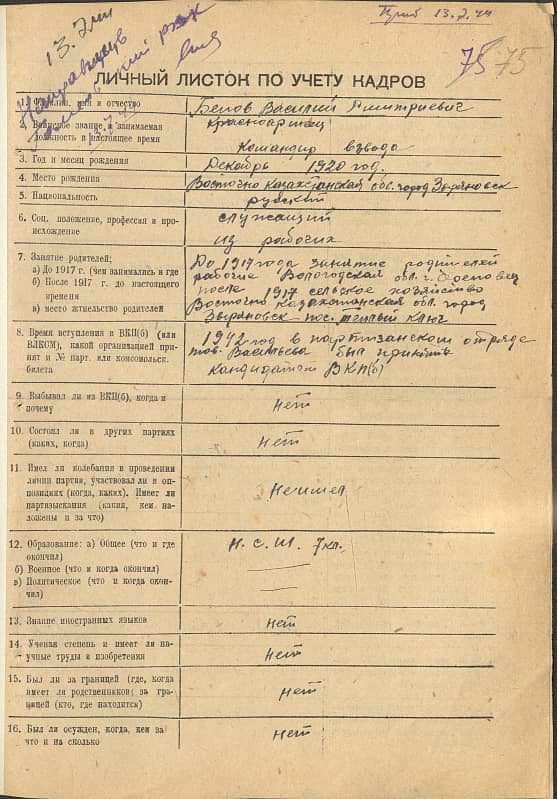 13.2.44
Прибыл 13.2.44
Направляется
75 75
ЛИЧНЫЙ ЛИСТОК ПО УЧЕТУ КАДРОВ
1. Фамилия, имя и отчество Белов Василий Дмитриевич
2. Воинское звание, занимаемая должность в настоящее время
Красноармеец
Командир взвода
3. Год и месяц рождения Декабрь 1920 год.
4. Место рождения Восточно Казахстанская обл. город Зыряновск
5. Национальность русский
6. Соц. положение, профессия и про-
исхождение
служащий
из рабочих
7. Занятие родителей;
а) До 1917 г. (чем занимались и где
б) После 1917 г. до настоящего
времени
в) место жительство родителей
До 1917 года занятие родителей
рабочие Вологодская обл. г.
после 1917 сельское хозяйство
Восточно Казахстанская обл. город
Зыряновск пос. теплый ключ
8. Время вступления в ВКП(б) (или
ВЛКСМ), какой организацией при-
нят и № парт. или комсомольск.
билета
1942 год в партизанском отряде
тов. Васильева был принят
кандидатом ВКП(б)
9. Выбывал ли из ВКП(б), когда и
почему
нет
10. Состоял ли в других партиях
(каких, когда)
нет
11. Имел ли колебания в проведении
линии партии, участвовал ли в оп-
позициях (когда, каких). Имеет ли
партвзыскания (какия, кем на-
ложены и за что)
Неимел
12. Образование: а) Общее (что и где
окончил)
б) Военное (что и когда окончил)
в) Политическое (что и когда окон-
чил)
Н. С. Ш. 7 кл.
13. Знание иностранных языков нет
14. Ученая степень и имеет ли на-
учные труды и изобретения
нет
15. Был ли за границей (где, когда
имеет ли родственников за гра-
ницей (кто, где находится)
нет
16. Был ли осужден, когда, кем за
что и на сколько
нет